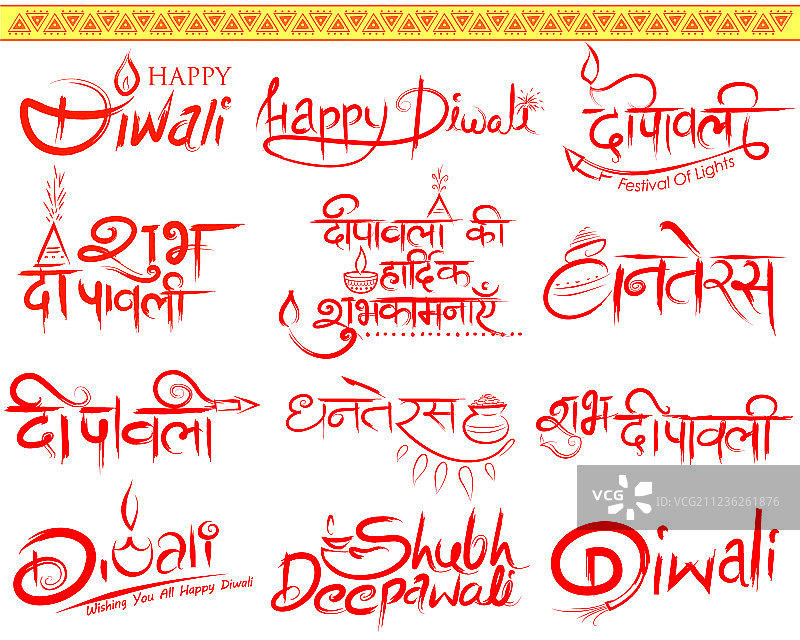 HAPPY
Diwali
Happy Diwali
दीपावली
Festival Of Lights
शुभ
दीपावली
दीपावली की
हार्दिक
शुभकामनाएँ
धनतेरस
दीपावली
धनतेरस
शुभ दीपावली
VCG VCG211236261876
Diwali
Wishing You All Happy Diwali
Shubh
Deepawali
Diwali